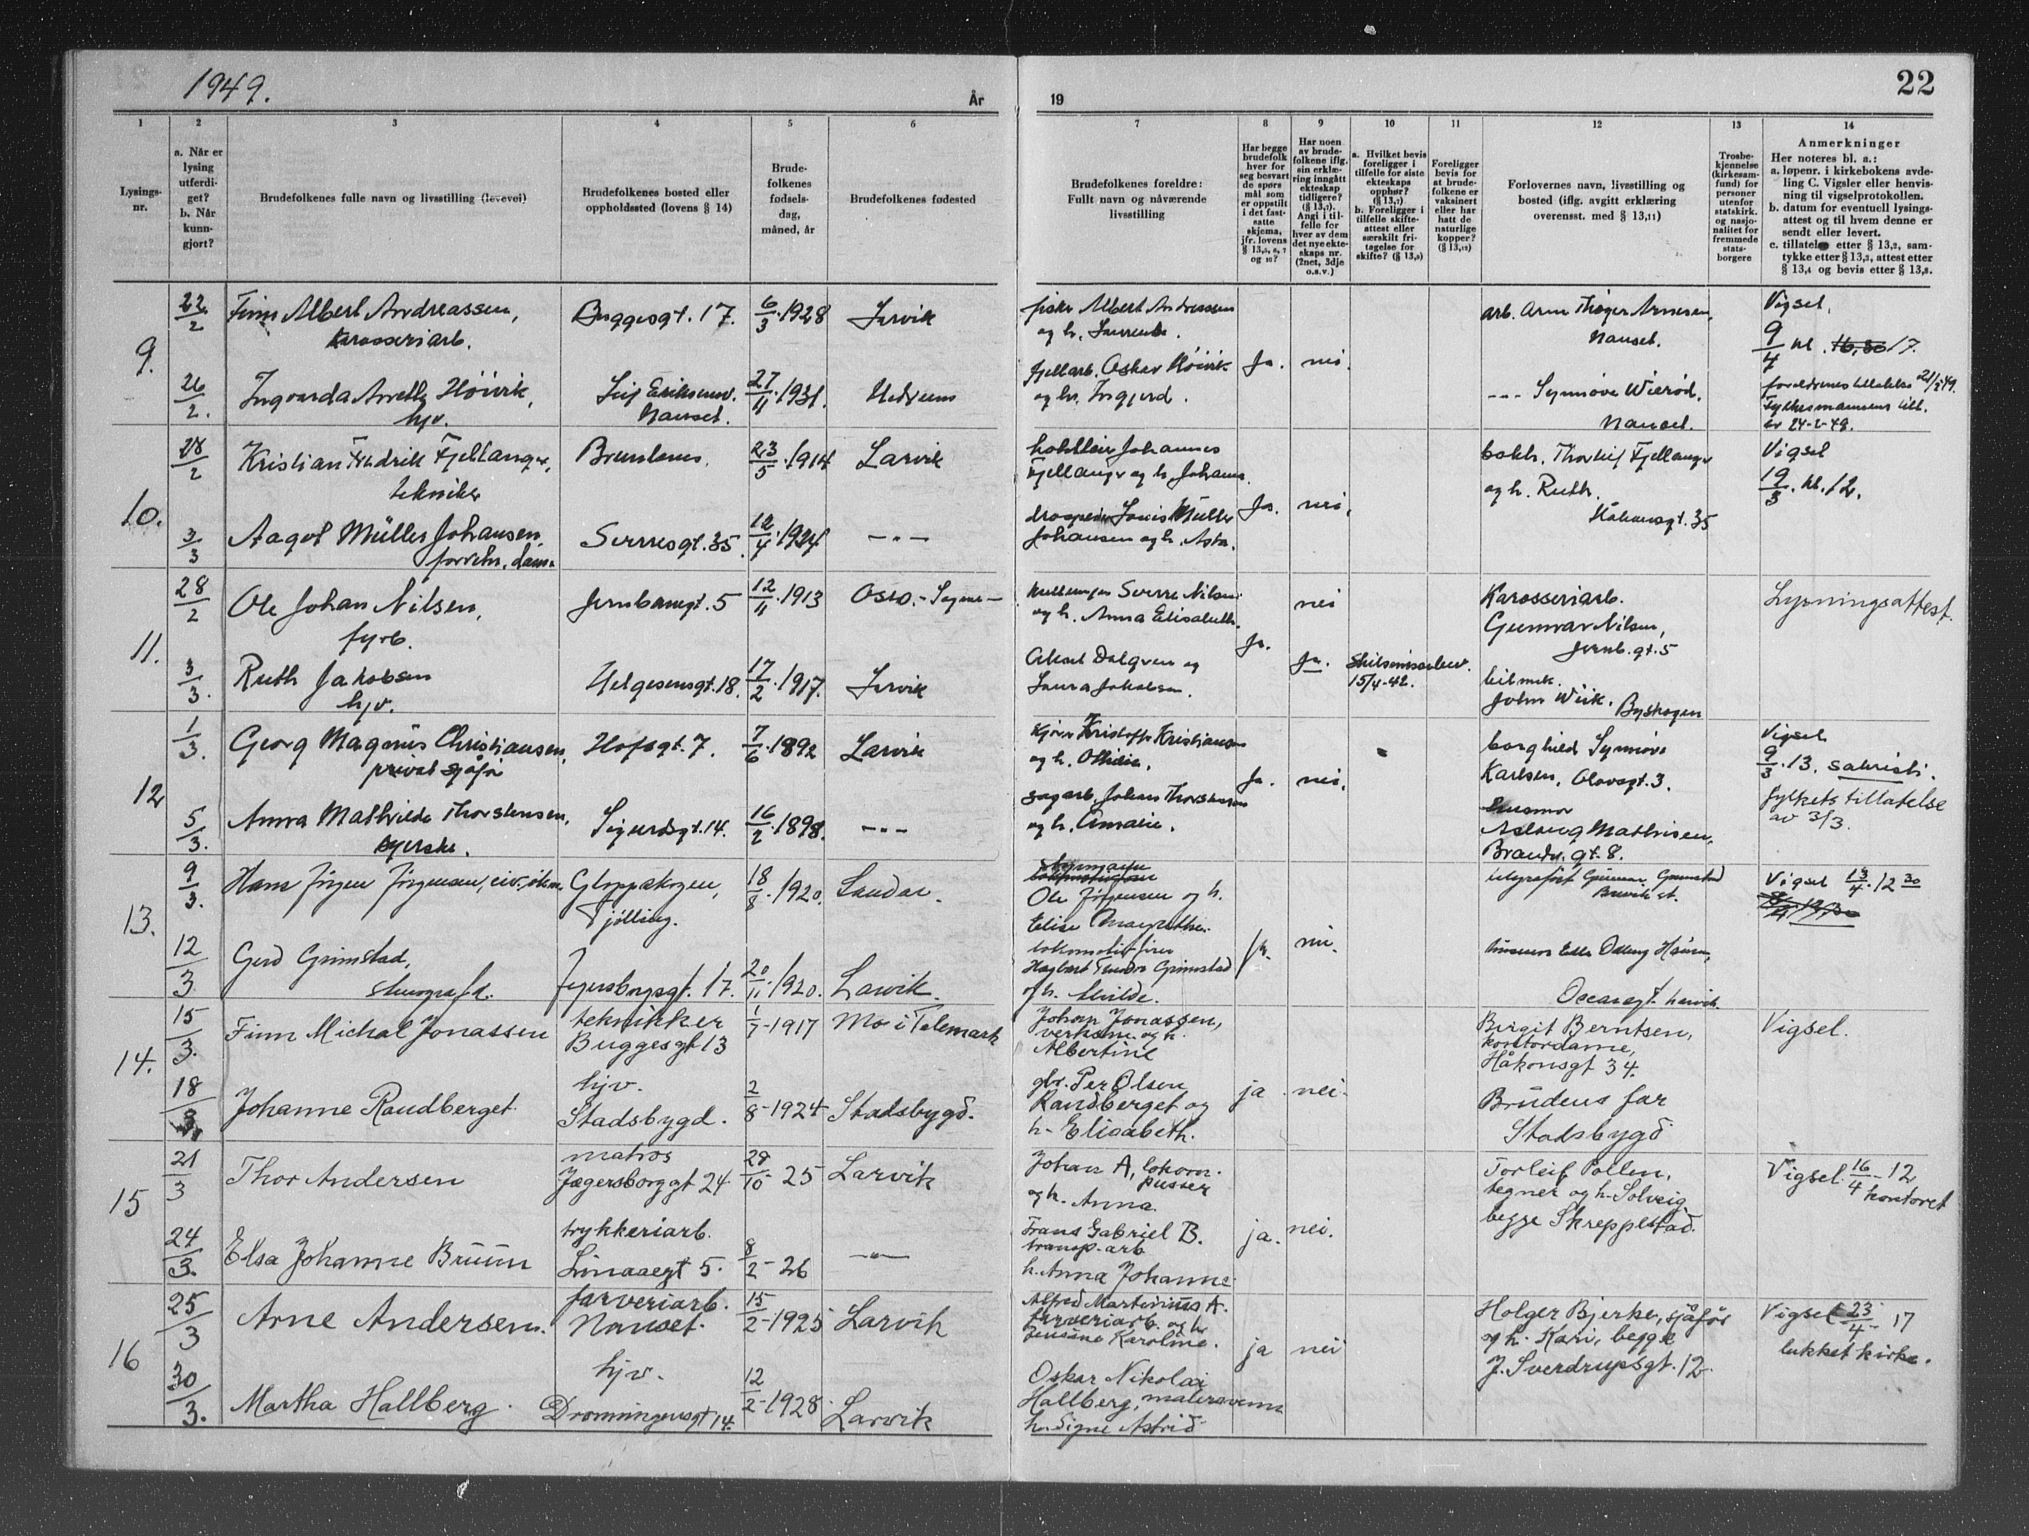 1949.
År
19
22
1
2
3
4
5
6
7
8
9
10
11
12
13
14
Lysings-
nr.
a. Når er
lysing
utferdi-
get?
b. Når
kunn-
gjort?
Brudefolkenes fulle navn og livsstilling (levevei)
Brudefolkenes bosted eller
oppholdssted (lovens § 14)
Brude-
folkenes
fødsels-
dag,
måned, år
Brudefolkenes fødested
Brudefolkenes foreldre:
Fullt navn og nåværende
livsstilling
Har begge
brudefolk
hver for
seg besvart
de spørs
mål som
er oppstilt
i det fast-
satte
skjema,
jfr. lovens
§ 13,5, 6, 7
og 10?
Har noen
av brude-
folkene iflg.
sin erklæ-
ring inngått
ekteskap
tidligere?
(§ 13,7).
Angi i til-
felle for
hver av dem
det nye ekte-
skaps nr.
(2net, 3dje
o.s.v.)
a. Hvilket bevis
foreligger i
tilfelle for siste
ekteskaps
opphør?
(§ 13,7)
b. Foreligger i
tilfelle skifte-
attest eller
særskilt fri-
tagelse for
skifte? (§ 13,8)
Foreligger
bevis for
at brude-
folkene er
vaksinert
eller har
hatt de
naturlige
kopper?
(§ 13,12)
Forlovernes navn, livsstilling og
bosted (iflg. avgitt erklæring
overensst. med § 13,11)
Trosbe-
kjennelse
(kirkesam-
fund) for
personer
utenfor
statskirk.
og nasjo-
nalitet for
fremmede
stats-
borgere
Anmerkninger
Her noteres bl. a.:
a. løpenr. i kirkebokens avde-
ling C. Vigsler eller henvis-
ning til vigselprotokollen.
b. datum for eventuell lysings-
attest og til hvem denne er
sendt eller levert.
c. tillatelse etter § 13,2, sam-
tykke etter § 13,3, attest etter
§ 13,4 og bevis etter § 13,8.
9.
22/2 Finn Albert Andreassen, Buggesgt. 17. 6/3 1928 Larvik
karosseriarb.
fisker Albert Andreassen
og h. Laurentse.
arb. Arne Thoger Arnesen,
Nanset.
Vigsel.
9/4 kl. 16,30 17.
26/2. Ingvarda Anette Höivik, Leif Eriksensv. 27/11 1931. Hedrum
hjv. Nanset.
fjellarb. Oskar Höivik Ja. nei.
og h. Ingjerd.
--- Synnöve Wieröd,
Nanset.
foreldrenes tillatelse 21/2 49.
Fylkesmannens till.
av 24-2-49.
10.
28/2 Kristian Fredrik Fjellanger, Brunlanes. 23/5 1914 Larvik
tekniker
Johannes
Fjellanger og h. Johanna.
bokh. Thorleif Fjellanger
og h. Ruth.
Håkonsgt. 35
Vigsel
19/3. kl. 12.
3/3 Aagot Müller Johansen, Sverresgt. 35. 12/4 1924 -"-
forretn. dame
Louis Müller Ja. nei.
Johansen og h. Asta.
11.
28/2 Ole Johan Nilsen, Jernbanegt. 5 12/11 1913 Oslo.
fyrb.
Sverre Nilsen
og h. Anna Elisabeth.
nei
Karosseriarb.
Gunnar Nilsen,
Jernb. gt. 5
Lysningsattest.
3/3. Ruth Jakobsen Helgesensgt. 18. 17/2 1917. Larvik
hjv.
Ja.
Aksel Dalgren og
Laura Jakobsen.
Ja. skilsmissebev.
15/4-42.
bilmek.
John Wiik, Byskogen
12
1/3. Georg Magnus Christiansen, Hofsgt. 7. 7/6 1892 Larvik
privat sjåfør
Kristoffer Kristiansen
og h. Othilie.
Borghild Synnöve
Karlsen, Olavsgt. 3.
Vigsel
9/3. 13. sakristi.
5/3. Anna Mathilde Thorstensen, Sigurdsgt. 14. 16/2 1898. -"-
syerske.
Ja. nei.
sagarb. Johan Thorstensen
og h. Amalie.
Husmor
Aslaug Mathisen,
Brandv. gt. 8.
fylkets tillatelse
av 3/3.
13.
9/3. Hans Jörgen Jörgensen, siv. økon. Gloppeskogen, 18/8 1920. Sandar.
Tjölling.
Ole Jörgensen og h.
Elise Margrethe.
telegrafist Gunnar Grimstad
Vigsel 13/4. 12 30
12/3 Gerd Grimstad, Jegersborgsgt. 17. 20/11 1920. Larvik.
stenograf d.
lokomotivfører
Hagbart Teodor Grimstad
og h. Alvilde.
ja. nei.
Oscarsgt. Larvik.
14.
15/3. Finn Michal Jonassen tekniker 1/7-1917 Mo i Telemark
Buggesgt 13
Johan Jonassen,
og h.
Albertine
Birgit Berntsen,
kontordame,
Håkonsgt 34.
Vigsel.
18/3 Johanne Randberget hjv. 2/8-1924 Stadsbygd.
Stadsbygd.
gbr. Per Olsen
Randberget og
h. Elisabeth.
ja nei.
Brudens far
Stadsbygd
15
21/3 Thor Andersen matros 28/10-25 Larvik
Jægersborggt 24
Johan A, lokom.
pusser
og h. Anna
Torleif Pollen,
tegner og h. Solveig
begge Skreppestad.
Vigsel. 16/4-12
kontoret
24/3. Elsa Johanne Bruun trykkeriarb. 8/2-26 -"-
Linaaegt 5.
Frans Gabriel B.
transp. arb
h. Anna Johanne
ja. nei.
16
25/3 Arne Andersen. farveriarb. 15/2-1925 Larvik
Nanset.
Alfred Martinius A.
farveriarb. og h
Jensine Karoline.
ja nei
Holger Bjerke, sjåfør
og h. Kari, begge
J. Sverdrupsgt. 12
Vigsel 23/4- 17
lukket kirke.
30/3. Martha Hallberg. hjv. 12/2-1928. Larvik
Dronningensgt 14.
Oskar Nikolai
Hallberg, malersvenn
h. Signe Astrid